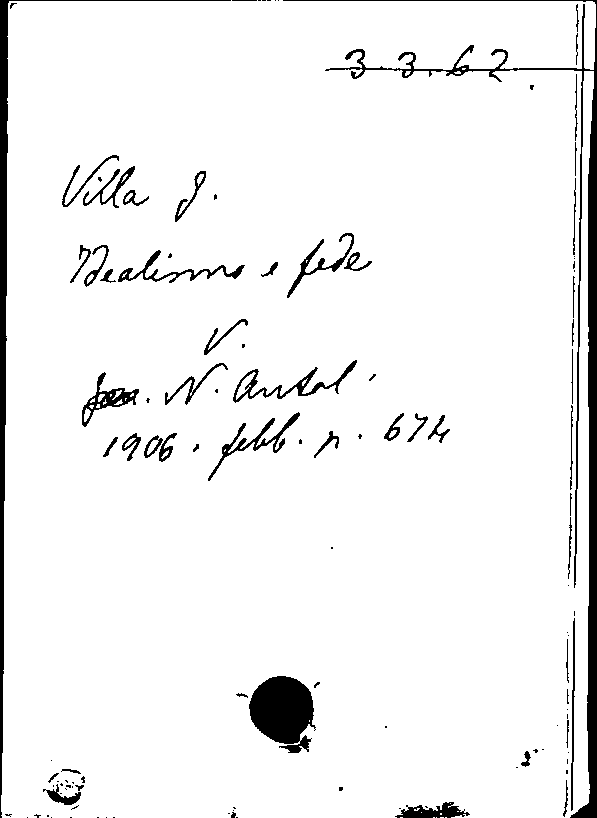 3.3.62
Villa G.
Idealismo e fede
V.
N. Antol.
1906. febb. p. 674